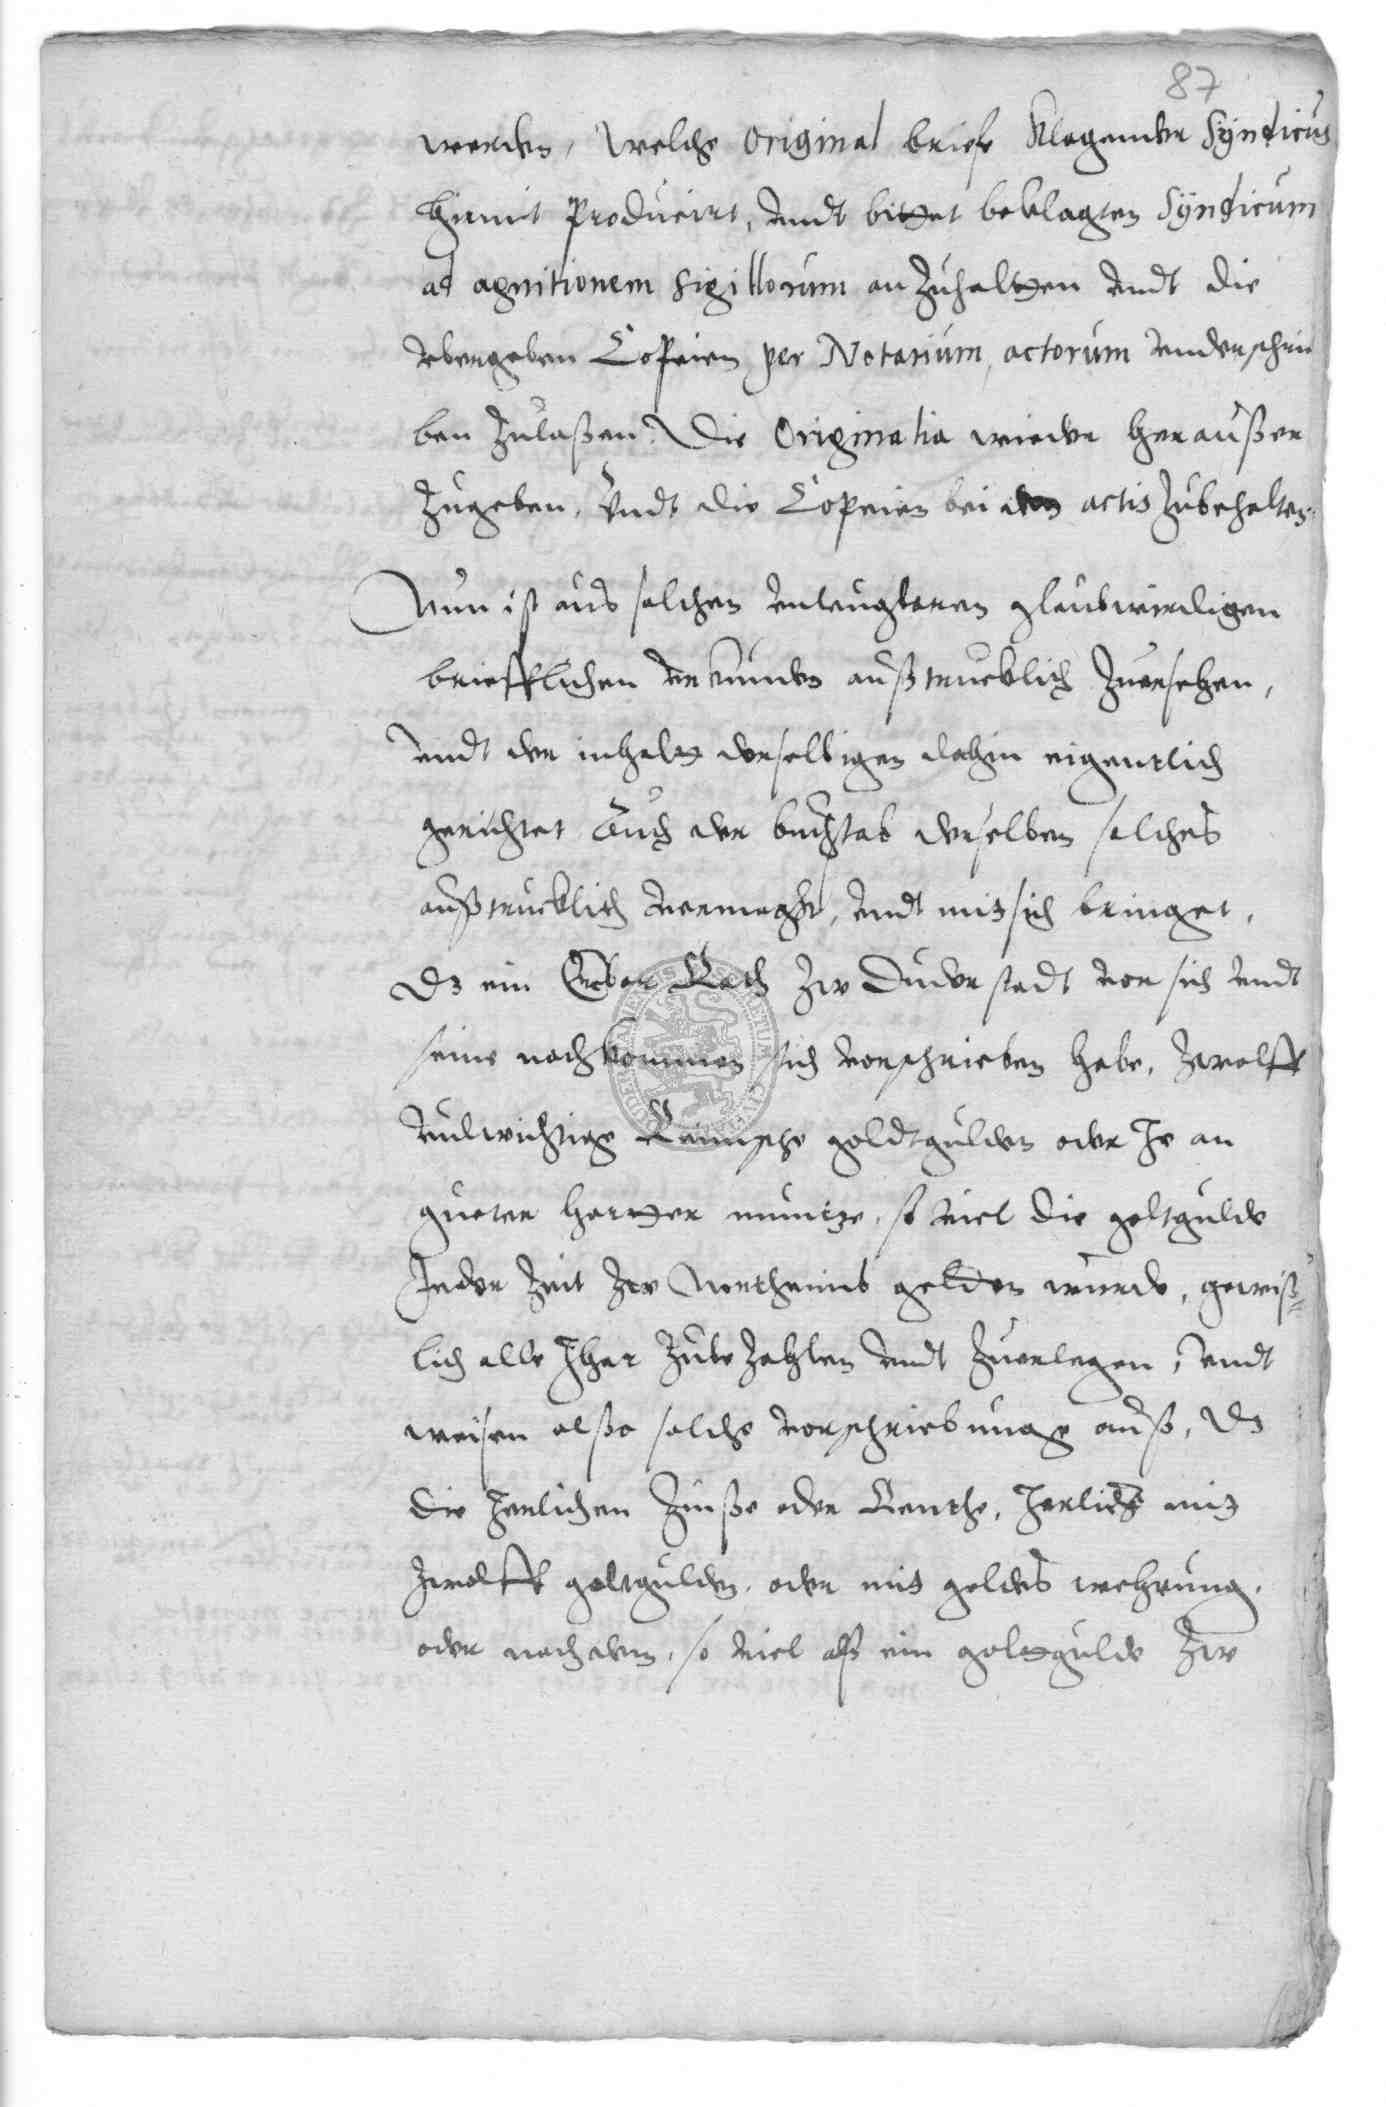 87
werden, welche Original briefe Klagender Syndicus
hirmit Producirt, undt bittet beklagten Syndicum
ad agnitionem sigillorum anzuhaltten undt die
ubergeben Copeien per Notarium actorum underschrei
ben zulaßen. Die Originalia wieder heraußer
zugeben, Undt die Copeien bei den actis zubehalten.
Nun ist aus solchen unleugbaren glaubwirdigen
briefflichen Urkunden außtrucklich zuersehen,
undt der inhaltt derselbigen dahin eigentlich
gerichtet Auch der buchstab derselben solches
außtrucklich vermagk, undt mit sich bringet,
Das ein Erbar Rath zw Duderstadt vor sich undt
seine nachkommen sich vorschrieben habe, zwolff
vulwichtige Reinische goldtgulden oder Je an
gueter hartter muntze, so viel die goltgulde
Jeder Zeit zw Northeimb gelden wurde, gewiß=
lich alle Jhar zubezahlen undt zuerlegen, undt
weisen alßo solche vorschriebunge auß, Das
die Jerlichen Zinße oder Renthe, Jerlich mit
zwolff goltgulden, oder mit goldes wehrung,
oder nachdem, so viel alß ein goltgulde zw